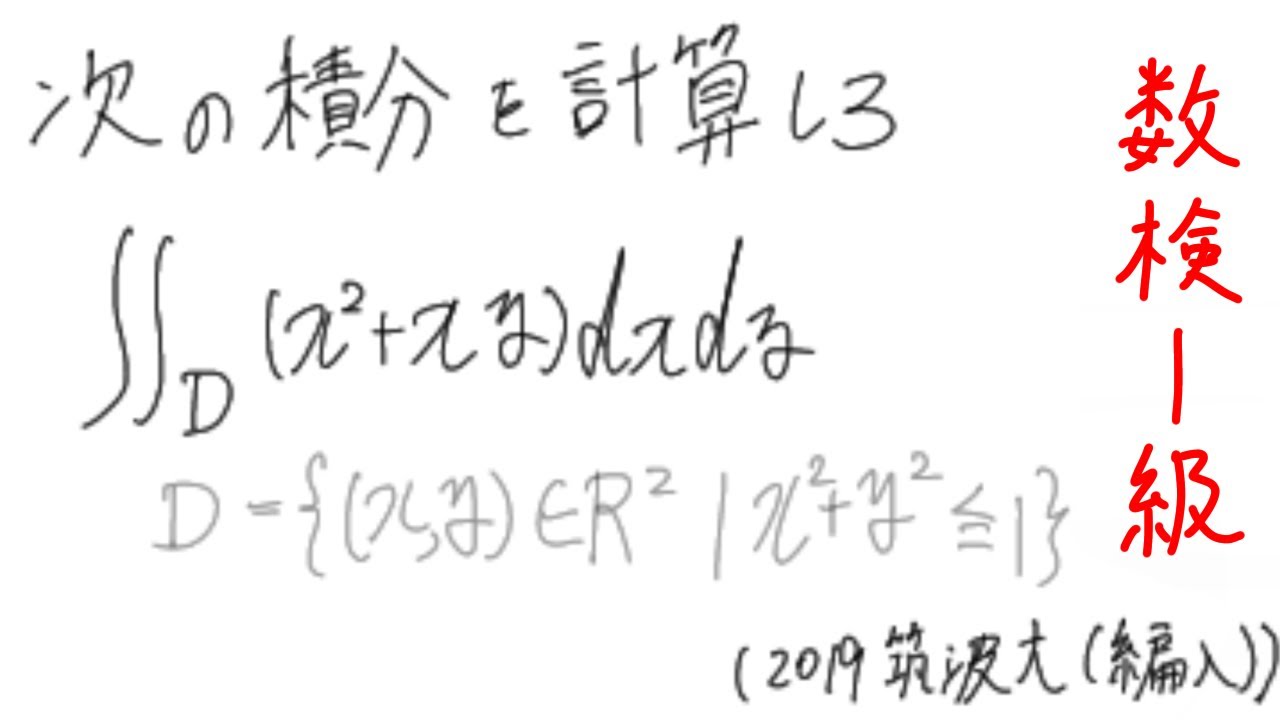 次の積分を計算しろ
∬_D (x²+xy)dxdy
D={(x,y)∈R² | x²+y²≦1}
(2019 筑波大(編入))
数検一級